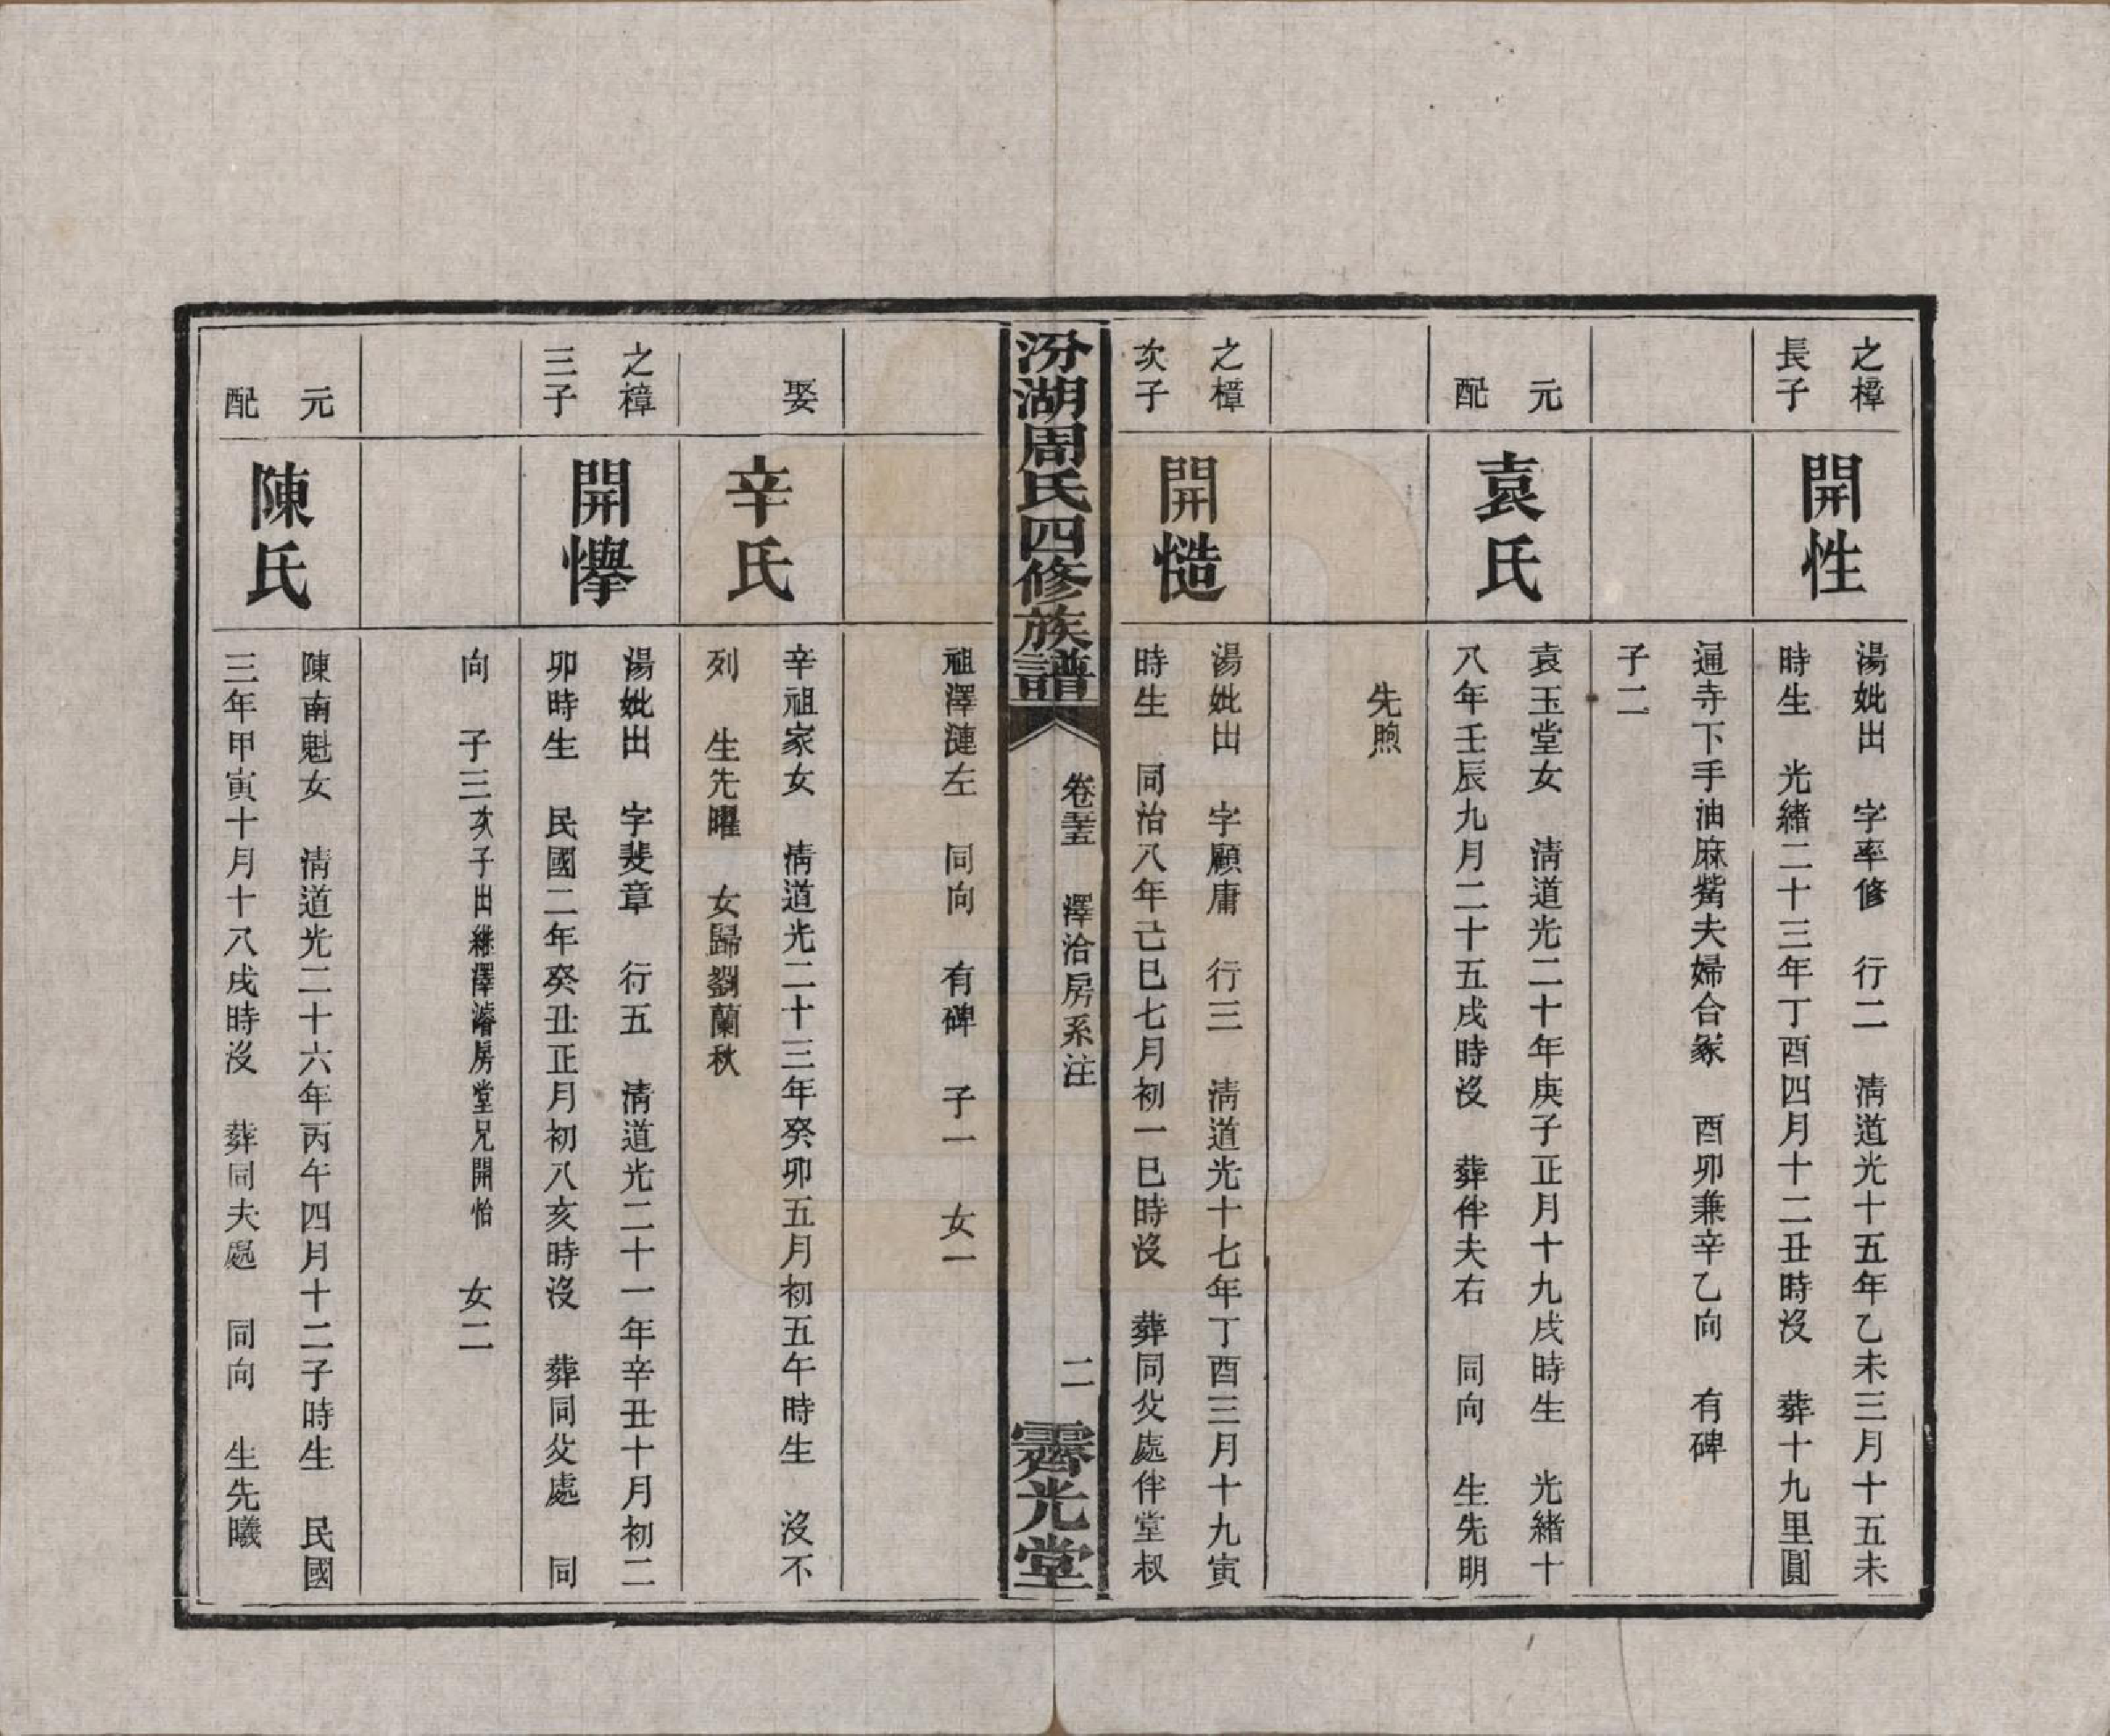 之樟
長子
開性
湯妣出　字率修　行二　清道光十五年乙未三月十五未
時生　光緒二十三年丁酉四月十二丑時沒　葬十九里圓
通寺下手油麻嘴夫婦合冢　酉卯兼辛乙向　有碑
子二
元
配
袁氏
袁玉堂女　清道光二十年庚子正月十九戌時生　光緒十
八年壬辰九月二十五戌時沒　葬伴夫右　同向　生先明
先煦
之樟
次子
開慥
湯妣出　字顧庸　行三　清道光十七年丁酉三月十九寅
時生　同治八年己巳七月初一巳時沒　葬同父處伴堂叔
汾湖周氏四修族譜
卷五十五　澤洽房系注
二
霽光堂
祖澤漣左　同向　有碑　子一　女一
娶
辛氏
辛祖家女　清道光二十三年癸卯五月初五午時生　沒不
列　生先曜　女歸劉蘭秋
之樟
三子
開懋
湯妣出　字斐章　行五　清道光二十一年辛丑十月初二
卯時生　民國二年癸丑正月初八亥時沒　葬同父處　同
向　子三次子出繼澤濬房堂兄開怡　女二
元
配
陳氏
陳南魁女　清道光二十六年丙午四月十二子時生　民國
三年甲寅十月十八戌時沒　葬同夫處　同向　生先曦